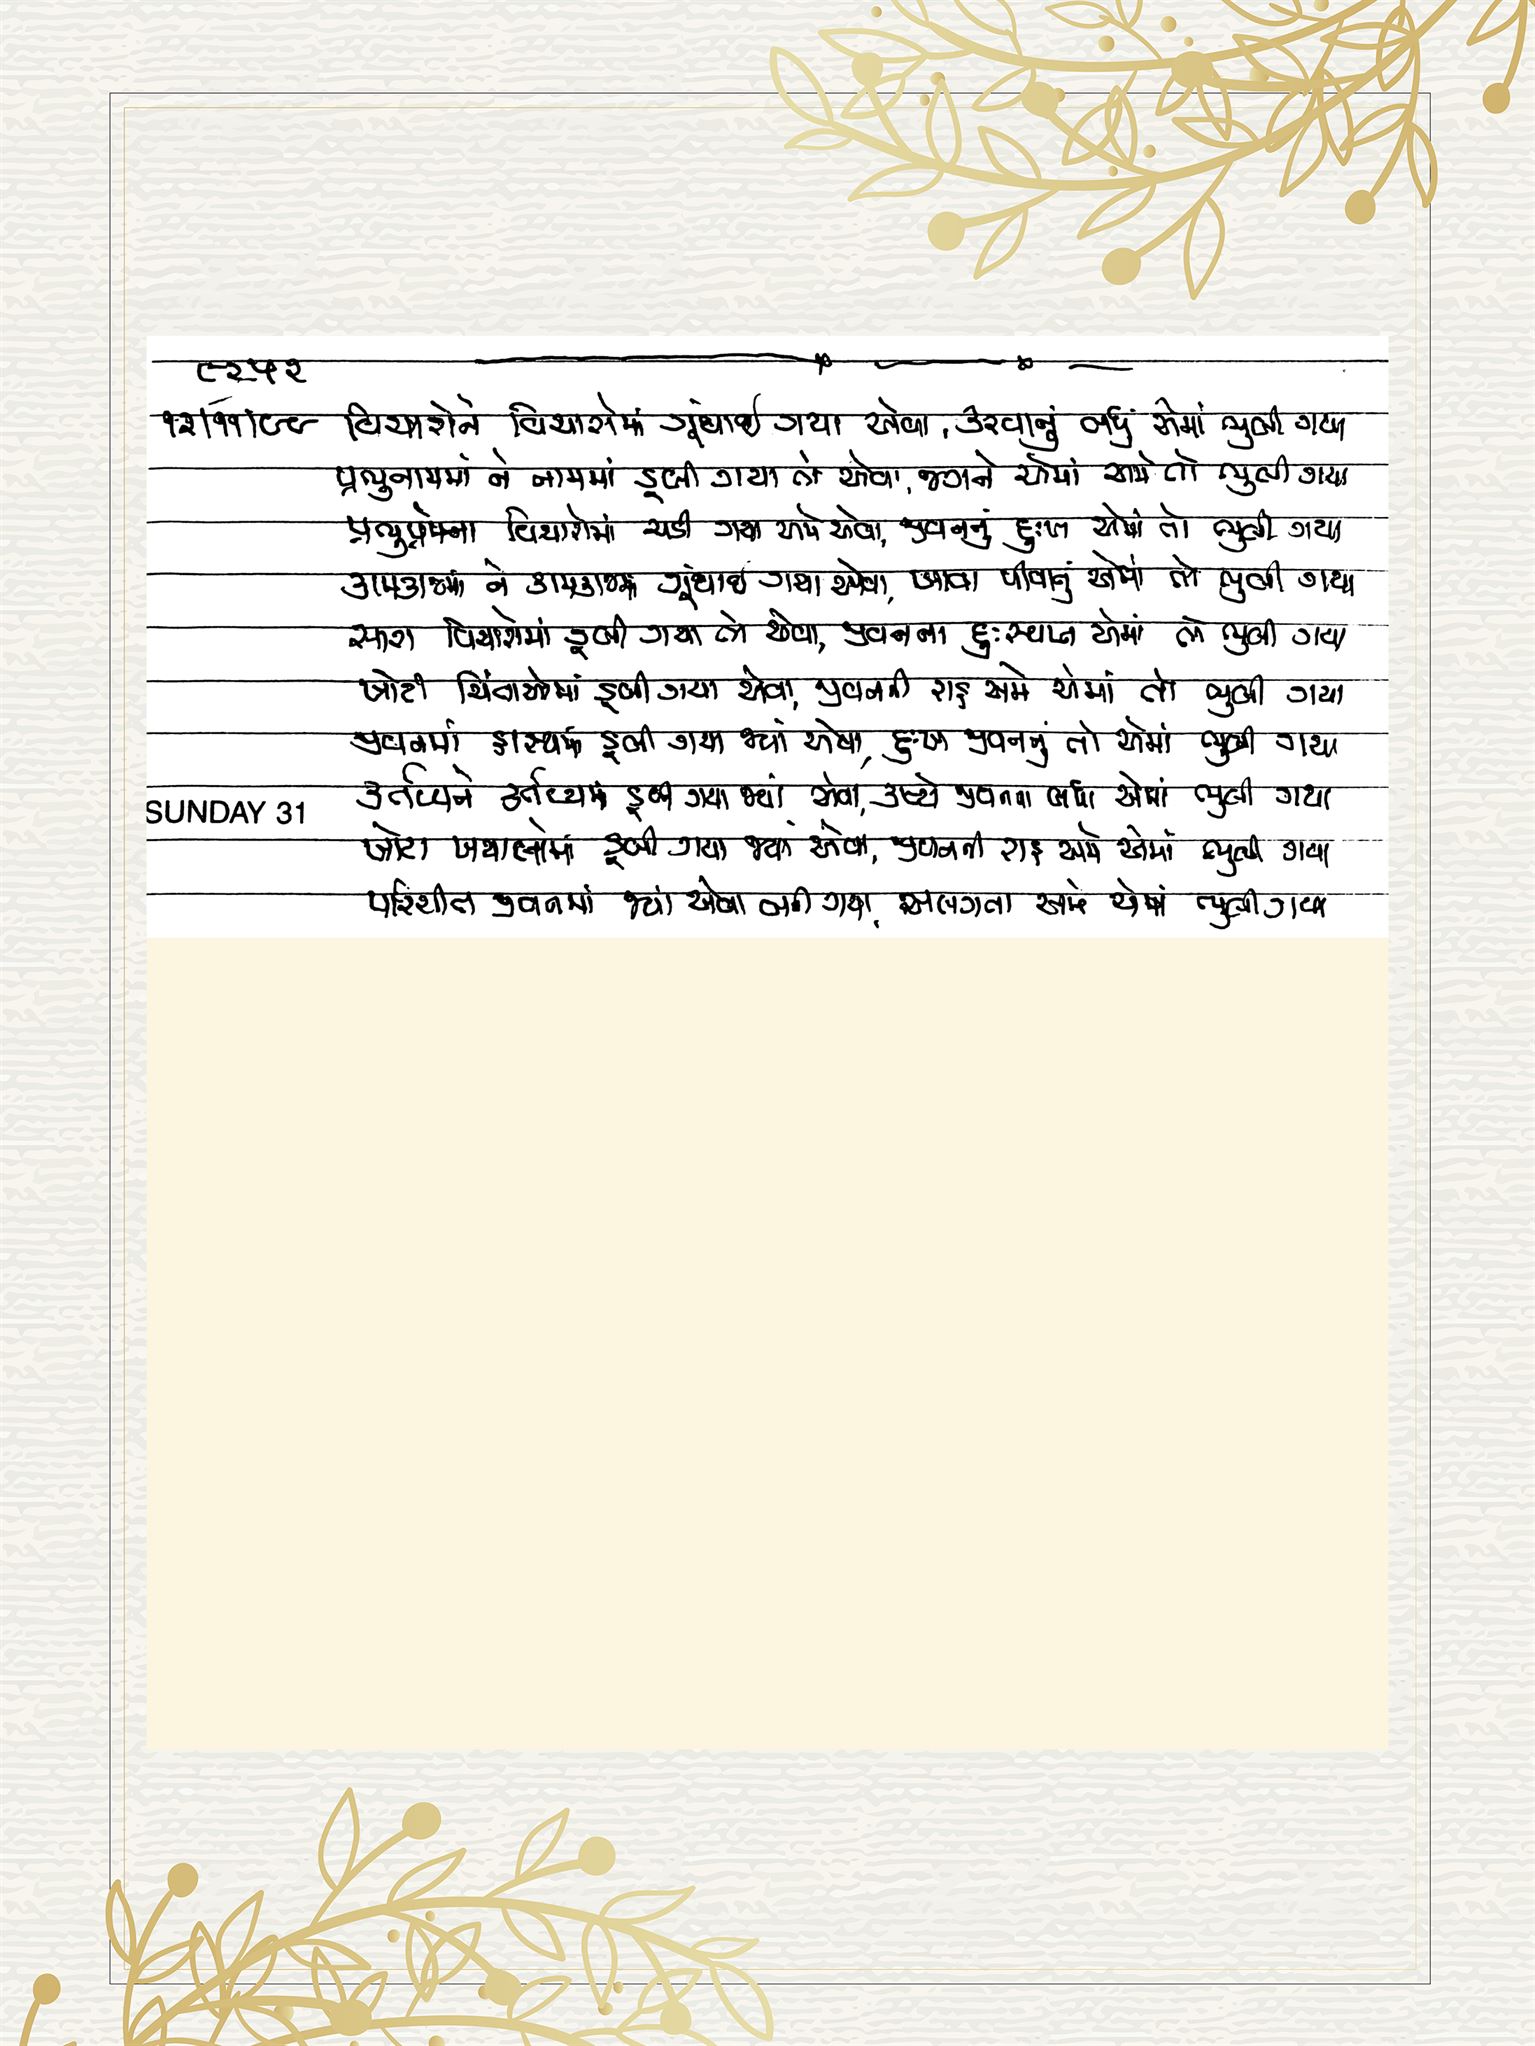 ૯૨૫૨
૧૨/૧૧/૯૯ વિચારોને વિચારોમાં ગૂંથાઈ ગયા એવા, કરવાનું બધું એમાં ભુલી ગયા
પ્રભુનામમાં ને નામમાં ડૂબી ગયા તો એવા, જગને એમાં અમે તો ભુલી ગયા
પ્રભુપ્રેમના વિચારોમાં ચડી ગયા અમે એવા, જીવનનું દુઃખ એમાં તો ભુલી ગયા
કામકાજમાં ને કામકાજમાં ગૂંથાઈ ગયા એવા, ખાવા પીવાનું એમાં તો ભુલી ગયા
સારા વિચારોમાં ડૂબી ગયા તો એવા, જીવનના દુઃસ્વપ્ન એમાં તો ભુલી ગયા
ખોટી ચિંતાઓમાં ડૂબી ગયા એવા, જીવનની રાહ અમે એમાં તો ભુલી ગયા
જીવનમાં હાસ્યમાં ડૂબી ગયા જ્યાં એવા, દુઃખ જીવનનું તો એમાં ભુલી ગયા
કર્તવ્યને કર્તવ્યમાં ડૂબી ગયા જ્યાં એવા, જીવનના બધા એમાં ભુલી ગયા
SUNDAY 31
ખોટા ખયાલોમાં ડૂબી ગયા જ્યાં એવા, જીવનની રાહ અમે એમાં ભુલી ગયા
પરિચીત જીવનમાં જ્યાં એવા બની ગયા, અલગતા અમે એમાં ભુલી ગયા